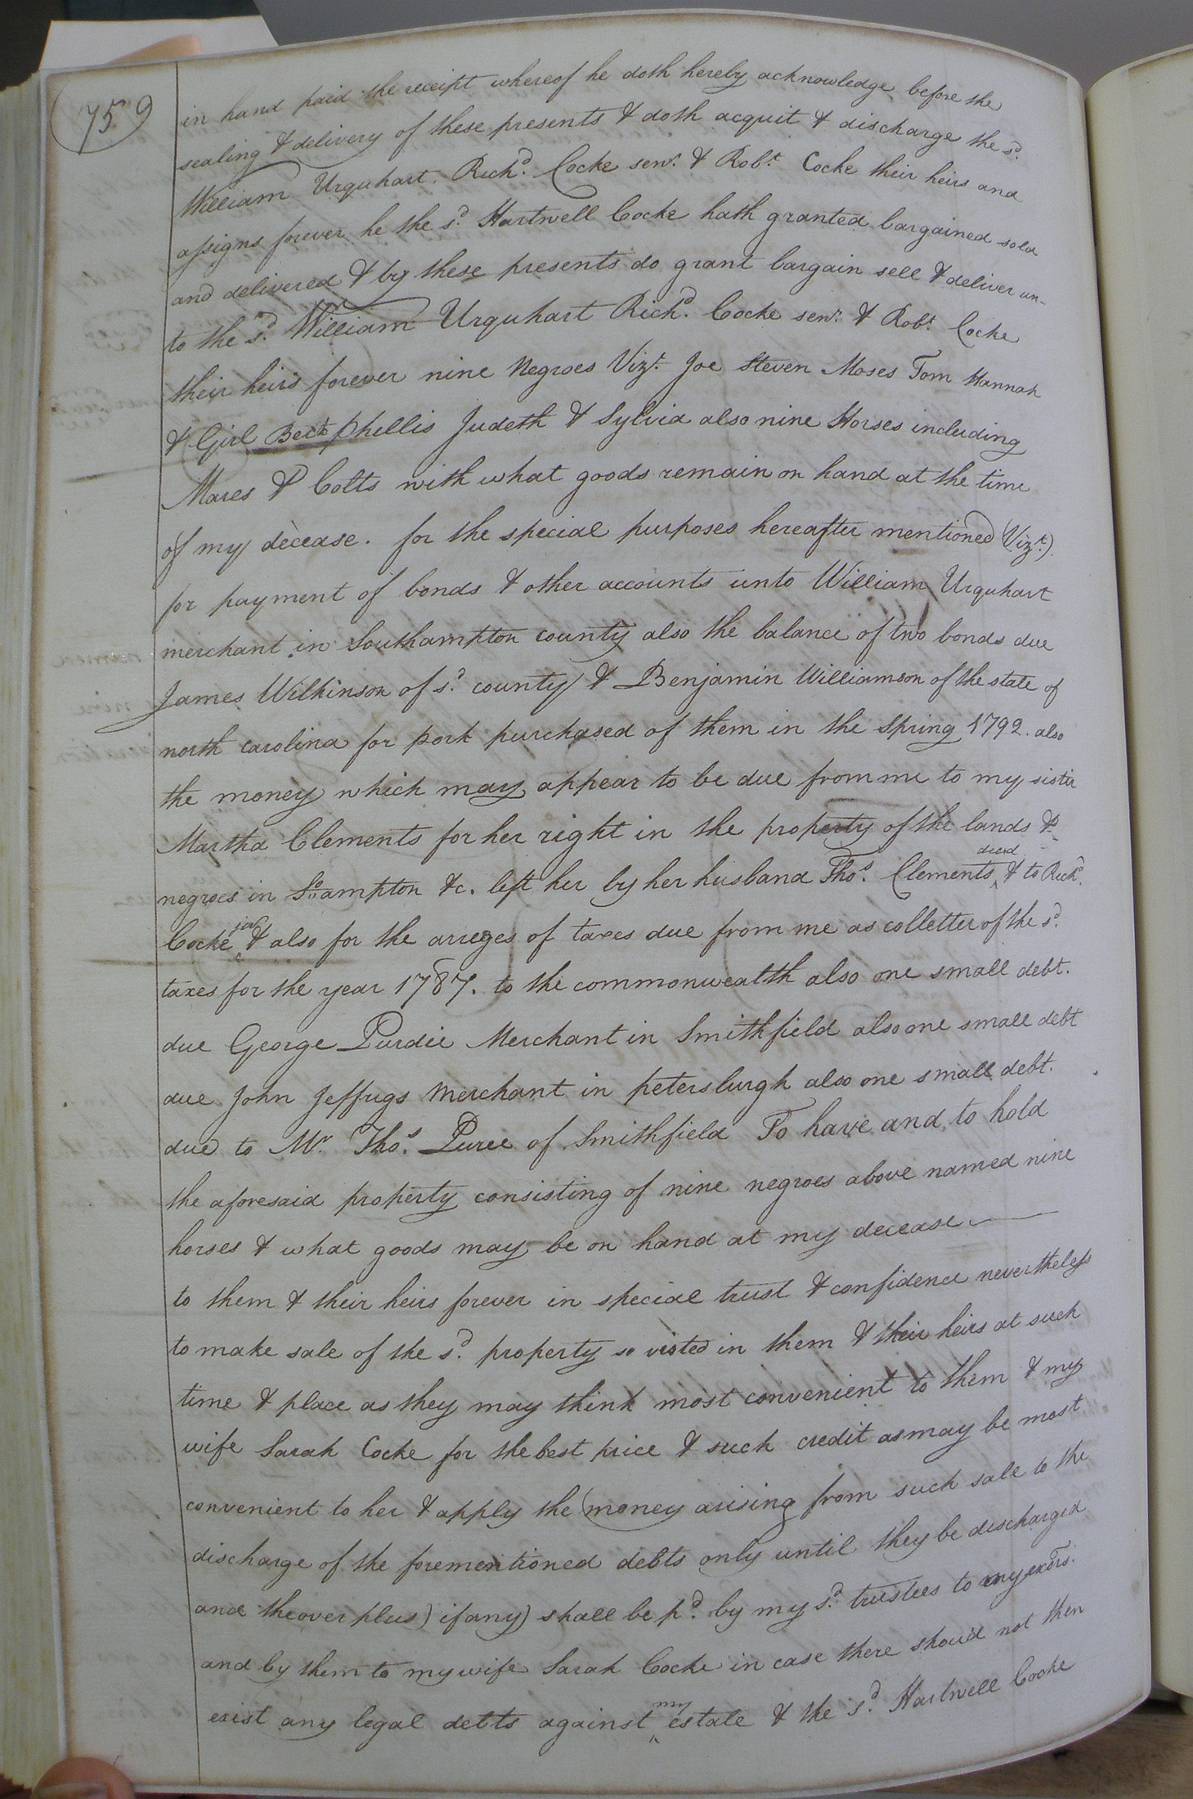 759
in hand paid the receipt whereof he doth hereby acknowledge before the
sealing & delivery of these presents & doth acquit & discharge the sd.
William Urquhart Richd. Cocke senr. & Robt. Cocke their heirs and
assigns forever he the sd. Hartwell Cocke hath granted bargained sold
and delivered & by these presents do grant bargain sell & deliver un-
to the sd. William Urquhart Richd. Cocke senr. & Robt. Cocke
their heirs forever nine Negroes Vizt. Joe Steven Moses Tom Hannah
& Girl Beck phillis Judeth & Sylvia also nine Horses including
Mares & Colts with what goods remain on hand at the time
of my decease. for the special purposes hereafter mentioned (Vizt.)
for payment of bonds & other accounts unto William Urquhart
merchant in Southampton county also the balance of two bonds due
James Wilkinson of sd. county & Benjamin Williamson of the state of
north carolina for pork purchased of them in the spring 1792. also
the money which may appear to be due from me to my sister
Martha Clements for her right in the property of the lands &
negroes in So.ampton &c. left her by her husband Thos. Clements decd & to Richd.
Cocke jar & also for the arreges of taxes due from me as colletter of the sd.
taxes for the year 1787. to the commonwealth also one small debt.
due George Purdie Merchant in Smithfield also one small debt
due John Jeffrigs Merchant in petersburgh also one small debt.
due to Mr. Thos. Purce of Smithfield To have and to hold
the aforesaid property consisting of nine negroes above named nine
horses & what goods may be on hand at my decease
to them & their heirs forever in special trust & confidence nevertheless
to make sale of the sd. property so visted in them & their heirs at such
time & place as they may think most convenient to them & my
wife Sarah Cocke for the best price & such credit as may be most
convenient to her & apply the money arising from such sale to the
discharge of the forementioned debts only until they be discharged
and the over plus) if any) shall be pd. by my sd. trustees to my exors.
and by them to my wife Sarah Cocke in case there should not then
exist any legal debts against my estate & the sd. Hartwell Cocke